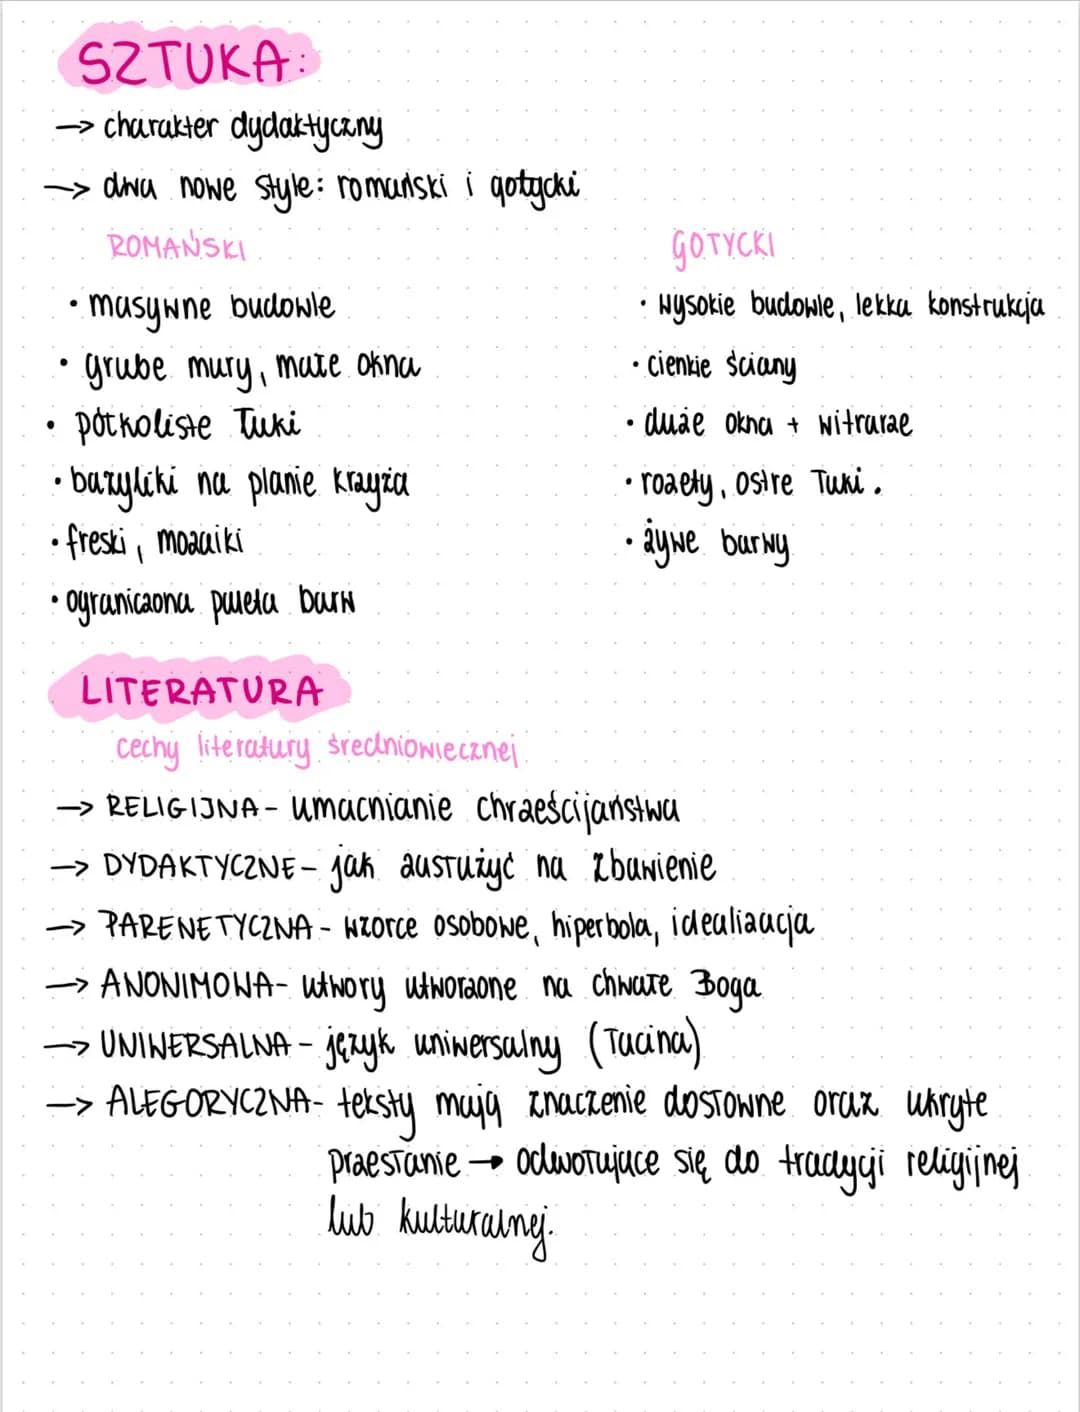 SZTUKA:
→ charakter dydaktyczny
→ dwa nowe style: romański i gotycki
ROMAŃSKI
• masywne budowle
• grube mury, małe okna
• półkoliste łuki
• bazyliki na planie krzyża
• freski, mozaiki
• ograniczona paleta barw
GOTYCKI
• wysokie budowle, lekka konstrukcja
• cienkie ściany
• duże okna + witraże
• rozety, ostre łuki.
• żywe barwy
LITERATURA
cechy literatury średniowiecznej
→ RELIGIJNA - umacnianie chrześcijaństwa
→ DYDAKTYCZNE - jak zasłużyć na zbawienie
→ PARENETYCZNA - wzorce osobowe, hiperbola, idealizacja
→ ANONIMOWA - utwory utworzone na chwałę Boga
→ UNIWERSALNA - język uniwersalny (łacina)
→ ALEGORYCZNA - teksty mają znaczenie dosłowne oraz ukryte
przesłanie → odwołujące się do tradycji religijnej
lub kulturalnej.